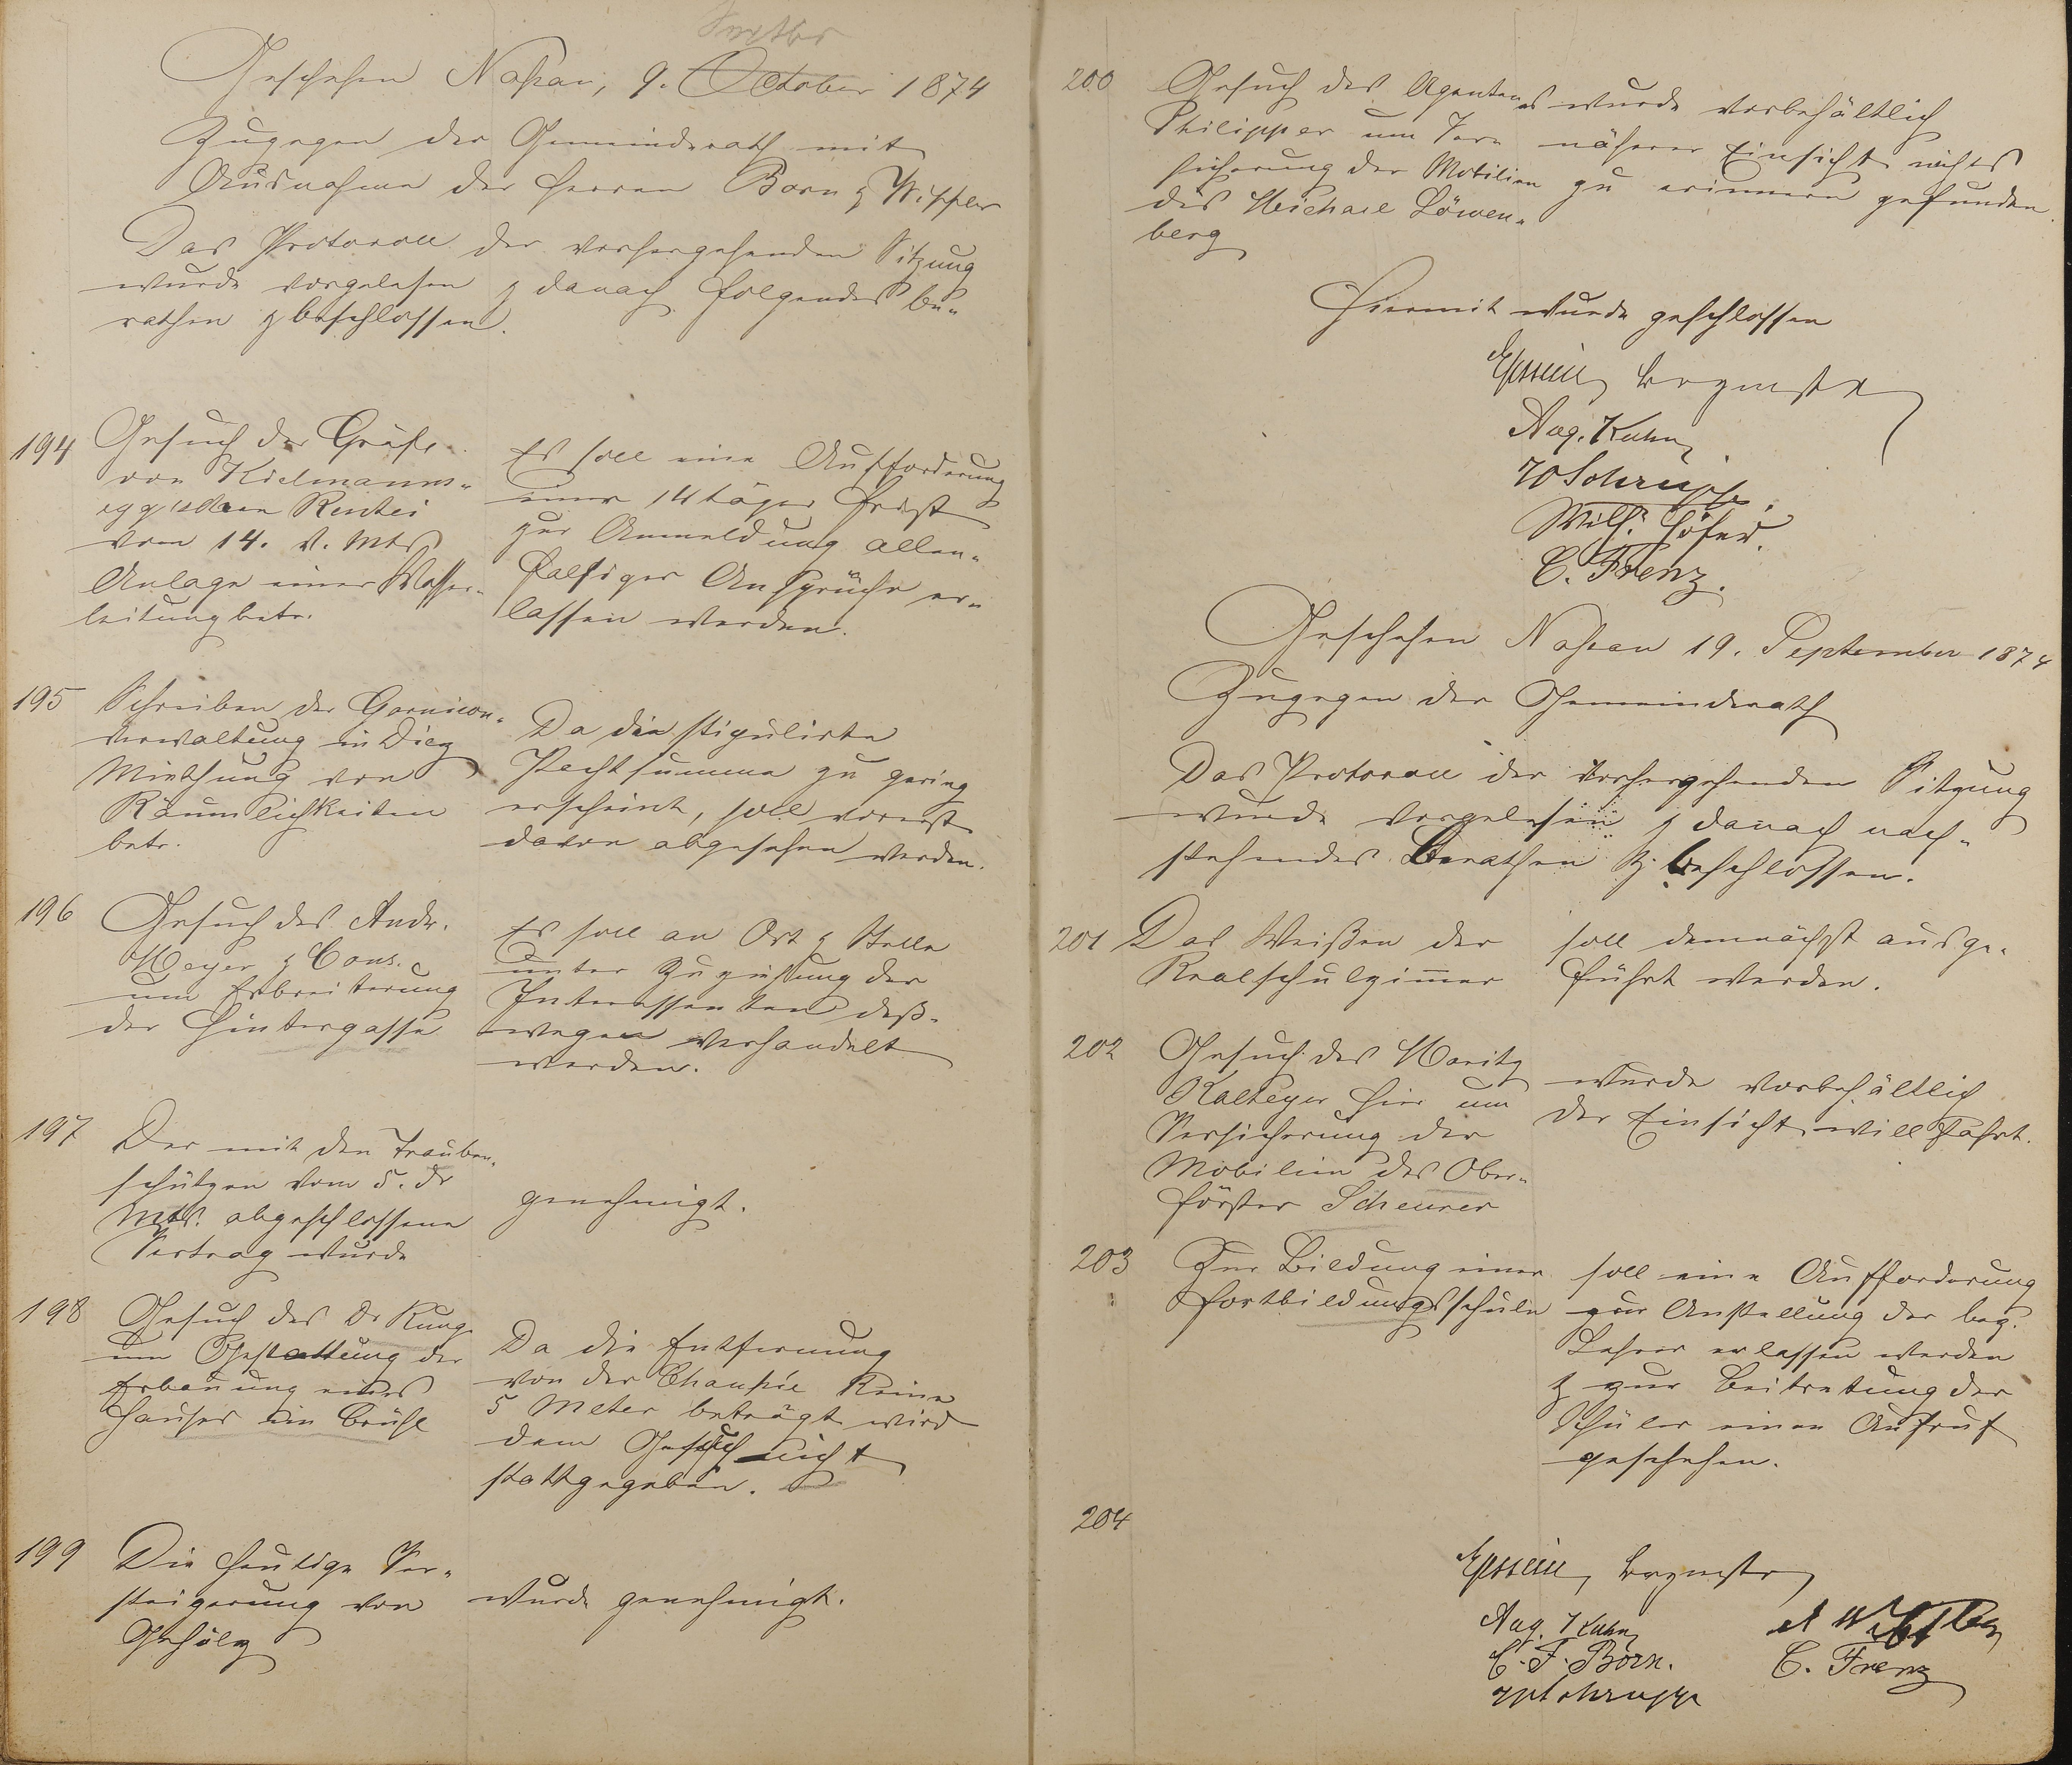 Septbr
Geschehen Nassau, 9. October 1874
Zugegen der Gemeinderath mit
Ausnahme der Herren Born &
Das Protocoll der vorhergehenden Sitzung
wurde vorgelesen & danach folgendes be-
rathen & beschlossen.
194
Gesuch der Gräfl.
von Kielmanns-
egg'schen Rentei
vom 14. v. Mts
Anlage einer Wasser-
leitung betr.
Es soll eine Aufforderung
einer 14täger Frist
zur Anmeldung allen-
falsiger Ansprüche er-
lassen werden.
195
Schreiben der Garnison-
verwaltung in Diez
Miethung von
Räumlichkeiten
betr.
Da die stipulirte
Pachtsumme zu gering
erscheint, soll vorerst
davon abgesehen werden.
196
Gesuch des Andr.
Meyer & Cons.
um Erbreiterung
der Hintergasse
Es soll an Ort & Stelle
unter Zuziehung der
Interessenten deß-
wegen verhandelt
werden.
197
Der mit den Trauben-
schützen vom 5. ds
Mts. abgeschlossene
Vertrag wurde
genehmigt.
198
Gesuch des Dr Runge
um Gestattung der
Erbauung eines
Hauses im Brühl
Da die Entfernung
von der Chaussée keine
5 Meter beträgt wird
dem Gesuch nicht
stattgegeben.
199
Die heutige Ver-
steigerung von
Gehölz
wurde genehmigt.
200
Gesuch des Agenten
Philippar um Ver-
sicherung der Mobilien
des Michael Löwen-
berg
es wurde vorbehältlich
näherer Einsicht nichts
zu erinnern gefunden.
Hiermit wurde geschlossen
Brgmstr
Aug. Kuhn
W Schrupp.
Wilh. Höfer.
C. Frenz.
Geschehen Nassau 19. September 1874
Zugegen der Gemeinderath
Das Protocoll der vorhergehenden Sitzung
wurde vorgelesen & danach nach-
stehendes Berathen & beschlossen.
201
Das Weißen der
Realschulzimmer
soll demnächst ausge-
führt werden.
202
Gesuch des Moritz
Kalteyer hier um
Versicherung der
Mobilien des Ober-
förster Scheurer
wurde vorbehältlich
der Einsicht willfahrt.
203
Zur Bildung einer
Fortbildungsschule
soll eine Aufforderung
zur Anstellung der bez.
Lehrer erlassen werden
& zur Beitretung der
Schüler einen Aufruf
geschehen.
204
Brgmstr
Aug. Kuhn
C. F. Born.
C. Frenz
W Schrupp